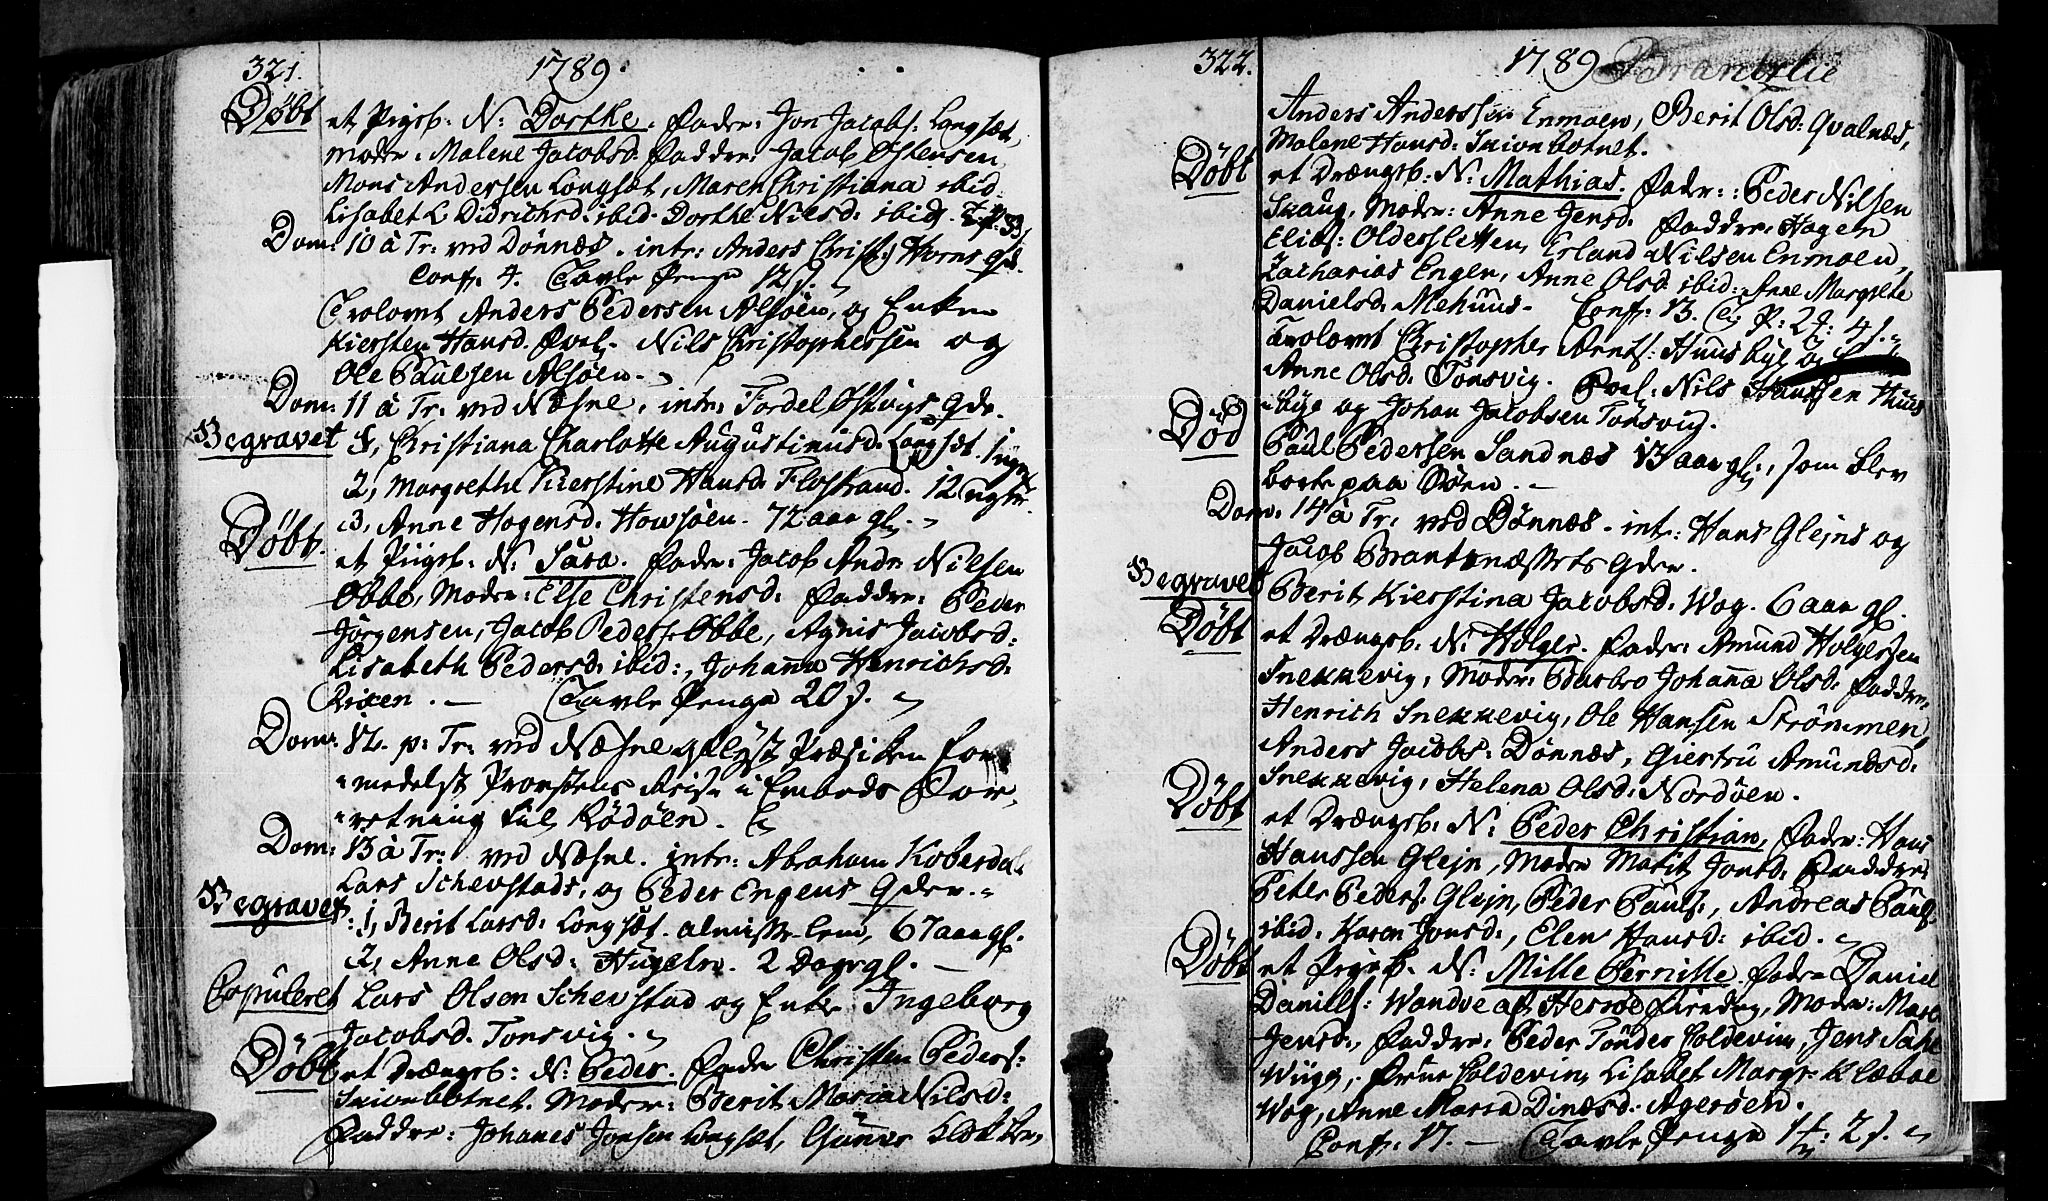 321. 1789.
Döbt et Pigeb: N: Dorthe. Fader: Jon Jacobs: Longsæt,
Moder: Malene Jacobsd. Faddre: Jacob Østensen
Mons Andersen Longsæt, Maren Christiana ibid
Lisabet L. Didrichsd: ibid. Dorthe Nilsd: ibid.
Dom: 10 à Tr: ved Dönnæs. intr: Anders Christ: Horns Qde.
Conf: 4. Tavle Penge 12 s.
Trolovet Anders Pedersen Alsöen, og Enken
Kiersten Hansd. Cavl: Nils Christophersen og
Ole Paulsen Alsöen.
Dom: 11 à Tr: ved Næsne, intr: Fordel Østvigs Qde.
Begravet 1, Christiana Charlotte Augustinusd: Longsæt.
2, Margrethe Kierstine Hansd. Flostrand. 12 uger
3, Anne Hagensd. Howsöen. 72 aar gl.
Döbt. et Piigeb: N: Sara. Fader: Jacob Andr: Nilsen
Obbe, Moder: Else Christensd: Faddre: Peder
Jörgensen, Jacob Peders: Obbe, Agnis Jacobsd:
Lisabeth Pedersd: ibid:, Johanna Henrichsd.
Risen. Tavle Penge 20 s.
Dom: 12. p: Tr: ved Næsne oplyst Præsiken for
medelst Provstens Reise i Embeds For
retning til Rödöen.
Dom: 13 à Tr: ved Næsne. intr: Abraham Koberdal
Lars Schevstads, og Peder Engens Qder.
Begravet: 1, Berit Larsd: Longsæt. almisse lem, 67 aar gl.
2, Anne Olsd: Hugelen. 2 Dage gl.
Copuleret Lars Olsen Schevstad og Enke Ingeborg
Jacobsd. Tonsvig.
Döbt et Drængeb: N: Peder. Fader Christen Peders:
Skivebotnet. Moder: Berit Maria Nilsd:
Faddre: Johanes Jonsen Longsæt, Gunner
322. 1789
Anders Anderssen Enmoen, Berit Olsd: Qvalnæs,
Malene Hansd: Skivebotnet.
Döbt et Drængeb. N: Mathias. Fader: Peder Nilsen
Skaug, Moder: Anne Jensd. Faddre: Hagen
Elias: Oldersletten, Erland Nilsen Enmoen,
Zacharias Engen, Anne Olsd ibid: Anne Margrete
Danielsd. Mehuus. Conf: 13. P: 2
Trolovet Christopher Arnts: Huusbye og
Anne Olsd. Tonsvig. Cavl: Nils Hanssen Huus
bye og Johan Jacobsen Tonsvig.
Död Paul Pedersen Sandnæs 13 aar gl:, som blev
borte paa Söen.
Dom: 14 à Tr: ved Dönnæs. intr: Hans Glejns og
Jacob Brantsnæssets Qder.
Begravet Berit Kierstina Jacobsd: Wog. 6 aar gl.
Döbt et Drængeb. N: Holger. Fader: Amund Holgersen
Snekkevig, Moder: Barbro Johanna Olsd. Faddre:
Henrich Snekkevig, Ole Hansen Strömmen,
Anders Jacobs: Dönnæs, Giertru Amundsd:
Snekkevig, Helena Olsd: Nordöen.
Döbt et Drængeb. N: Peder Christian, Fader: Hans
Hanssen Glejn, Moder Marit Jonsd. Faddre:
Peter Peders: Glejn, Peder Pauls:, Andreas Pauls:
ibid. Karen Jonsd:, Elen Hansd: ibid.
Döbt et Pigeb. N: Mille Pernille. Fader Daniel
Daniels: Wandve af Herröe Fierding, Moder: Mare
Jensd:, Faddre: Peder Tönder Coldevin, Jens
Coldevin, Lisabet Margr: Klæboe
Wog, Anne Maria Dinæsd. Agersen.
Conf: 17. Tavle Penge